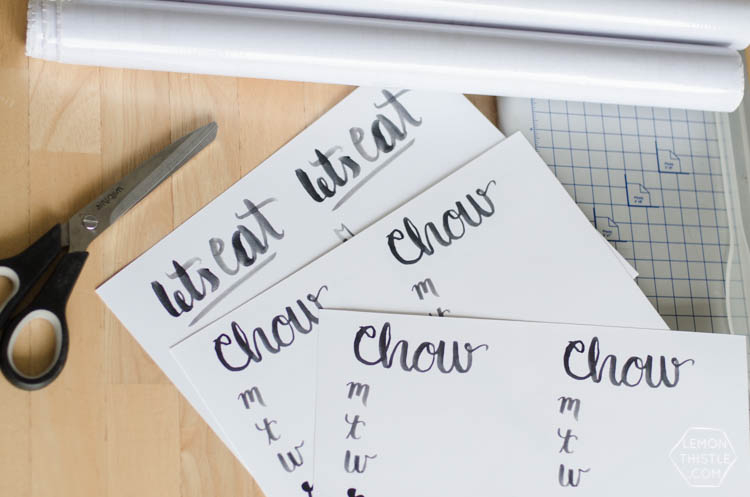 lets eat
lets eat
chow
m
chow
m
t
w
chow
m
t
w
chow
m
t
w
LEMON
THISTLE
.COM